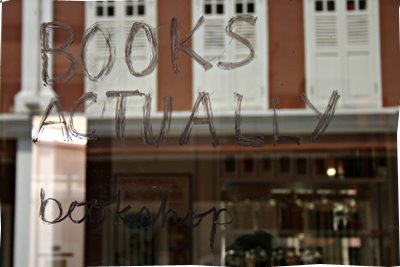 BOOKS
ACTUALLY
bookshop